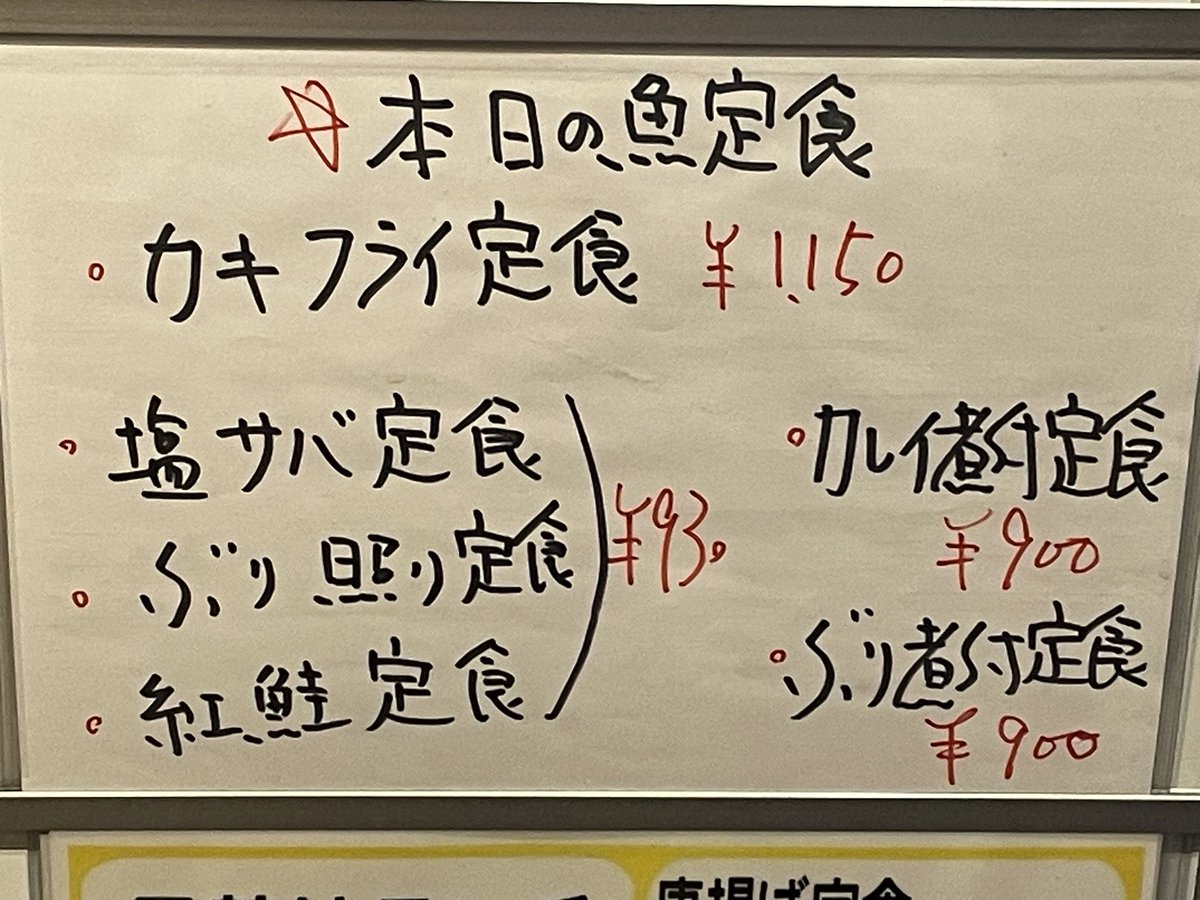 ☆本日の魚定食
・カキフライ定食 ¥1,150
・塩サバ定食
・ぶり照り定食
・紅鮭定食
¥930
・カレイ煮付定食
¥900
・ぶり煮付定食
¥900
唐揚げ定食